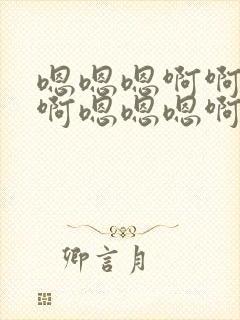 嗯嗯嗯啊啊
啊嗯嗯嗯啊
卿言月